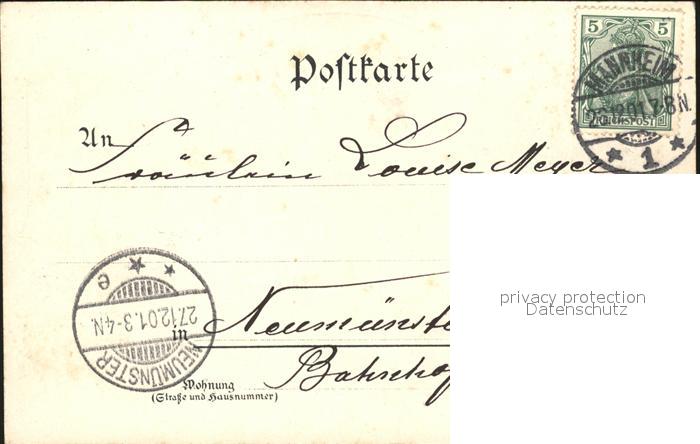 Postkarte
5 5
MANNHEIM
12.01.7-8N.
REICHSPOST
1
An Fräulein Louise Meyer
privacy protection
Datenschutz
in Neumünste
NEUMÜNSTER
27.12.01.3-4N.
e
Bahnhof
Wohnung
(Straße und Hausnummer)